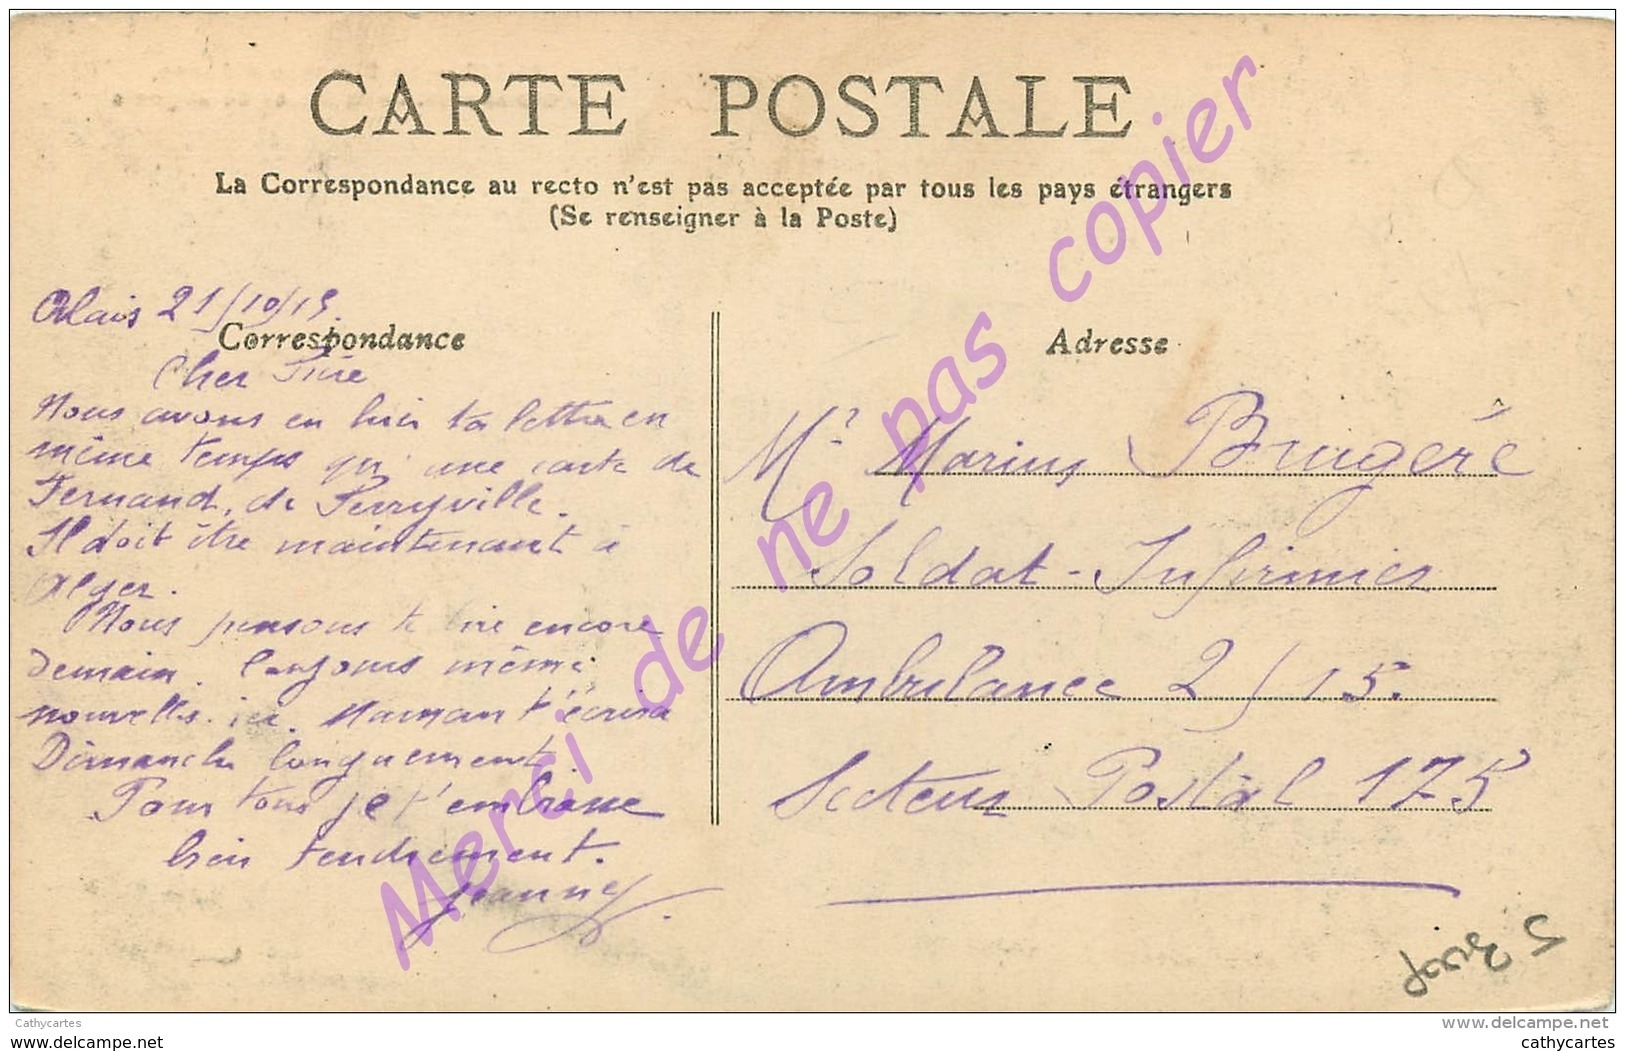 CARTE POSTALE
La Correspondance au recto n'est pas acceptée par tous les pays étrangers
(Se renseigner à la Poste)
Alais 21/10/15.
Correspondance
Cher Père
Nous avons eu hier ta lettre en
même temps qu'une carte de
Fernand, de Perryville.
Il doit être maintenant à
Alger.
Nous pensons te lire encore
Demain. Toujours même
nouvelles ici. Maman t'écrira
Dimanche longuement
Pour tous je t'embrasse
bien tendrement.
Jeanne
Adresse
Mr Marius Brugère
Soldat-Infirmier
Ambulance 2/15.
Secteur Postal 175
5
Merci de ne pas copier
Cathycartes
www.delcampe.net
www.delcampe.net
cathycartes